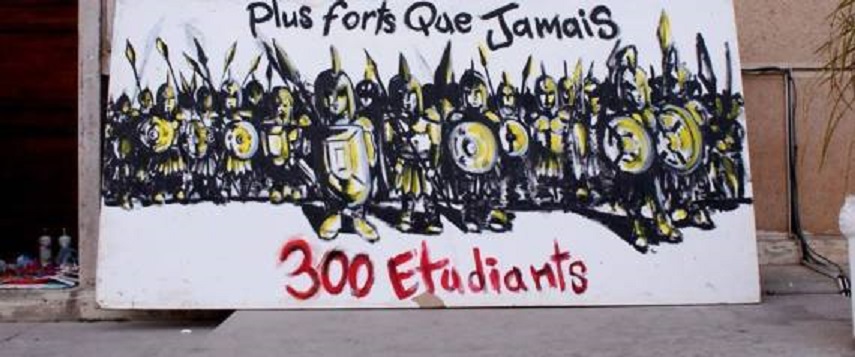 Plus forts Que Jamais
300 Etudiants